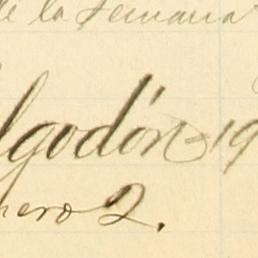 de la Semana
lgodón 19
nero 2.